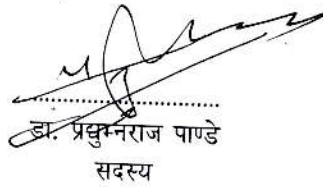 डा. प्रद्युम्नराज पाण्डे
सदस्य